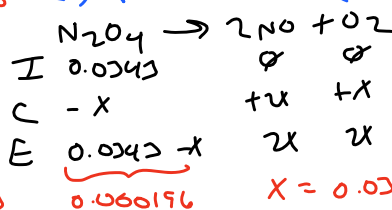 N2O4 → 2NO + O2
I 0.0343 Ø Ø
C - X +2X +X
E 0.0343 -X 2X 2X
0.000196 X = 0.03